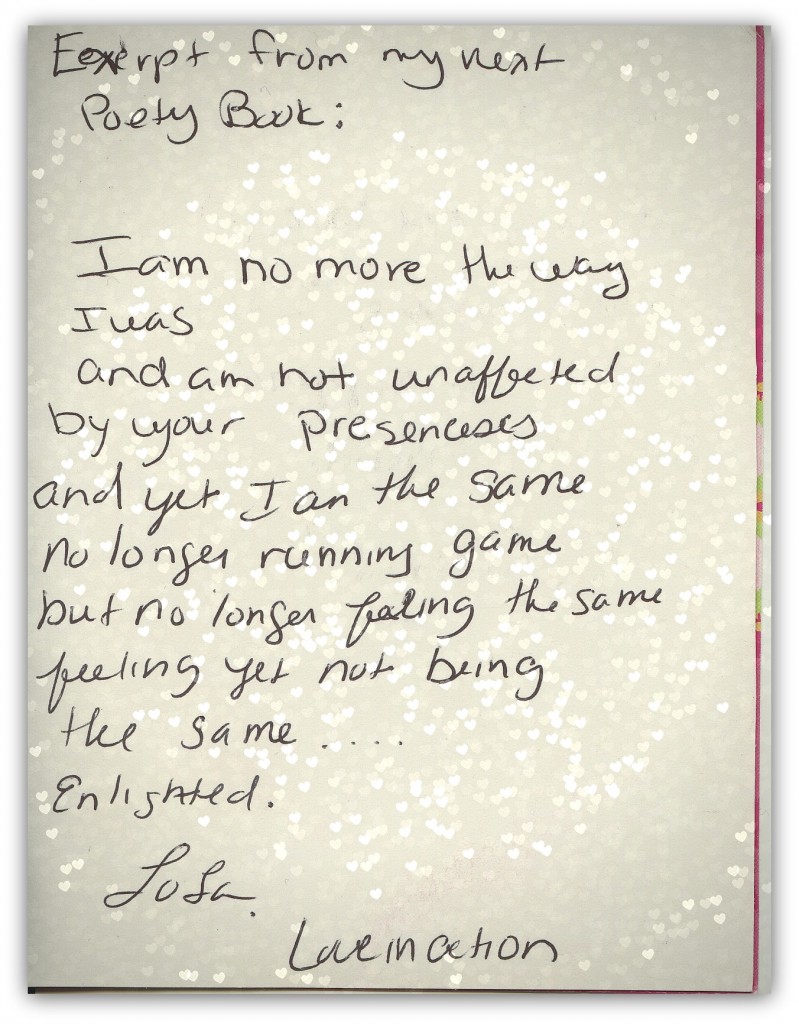 Exerpt from my next
Poety Book:
I am no more the way
I was
and am not unaffected
by your presenceses
and yet I am the same
no longer running game
but no longer feeling the same
feeling yet not being
the same ....
Enlighted.
Love in action